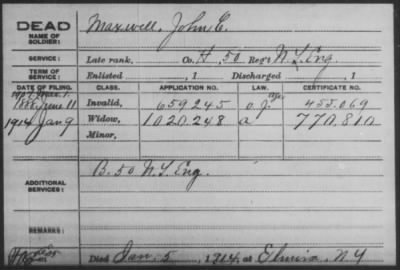 DEAD
NAME OF SOLDIER: Maxwell, John C.
SERVICE: Late rank, Co. H, 50 Reg't N.Y. Eng.
TERM OF SERVICE: Enlisted , 1 Discharged , 1
DATE OF FILING. CLASS. APPLICATION NO. LAW. CERTIFICATE NO.
1888 June 11 Invalid, 659245 453.069
1914 Jan 9 Widow, 1020.248 a 770.810
Minor,
ADDITIONAL SERVICES: B. 50 N.Y. Eng.
REMARKS:
Died Jan. 5, 1914, at Elmira, N.Y.